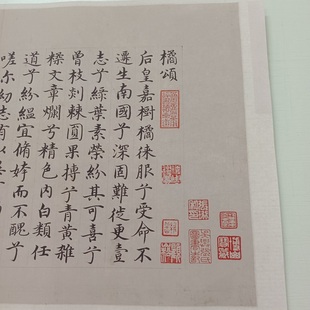 橘頌
后皇嘉樹橘徠服兮受命不
遷生南國兮深固難徙更壹
志兮綠葉素榮紛其可喜兮
曾枝剡棘圓果摶兮青黃雜
糅文章爛兮精色內白類任
道兮紛緼宜脩姱而不醜兮
嗟尔幼志有以